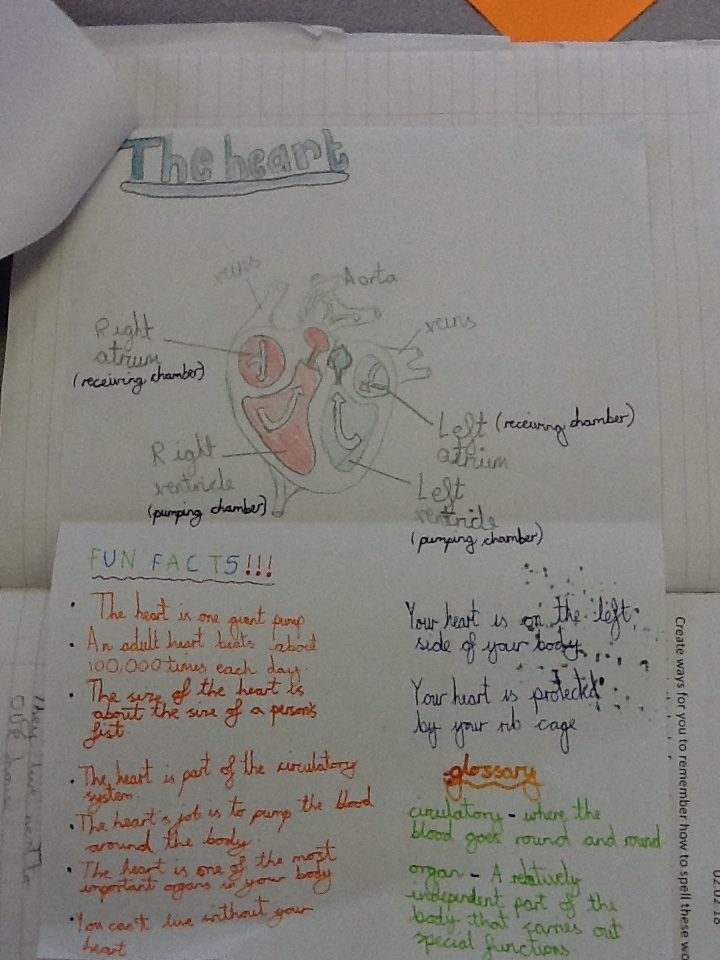 The heart
veins
Aorta
veins
Right
atrium
(receiving chamber)
Left (receiving chamber)
atrium
Right
ventricle
(pumping chamber)
Left
ventricle
(pumping chamber)
FUN FACTS!!!
• The heart is one giant pump
• An adult heart beats about
100,000 times each day.
• The size of the heart is
about the size of a person's
fist
• The heart is part of the circulatory
system.
• The heart's job is to pump the blood
around the body.
• The heart is one of the most
important organs in your body
• You can't live without your
heart
Your heart is on the left
side of your body
Your heart is protected
by your rib cage
glossary
circulatory - where the
blood goes round and round
organ - A relatively
independent part of the
body that carries out
special functions
Create ways for you to remember how to spell these wo
02.02.18